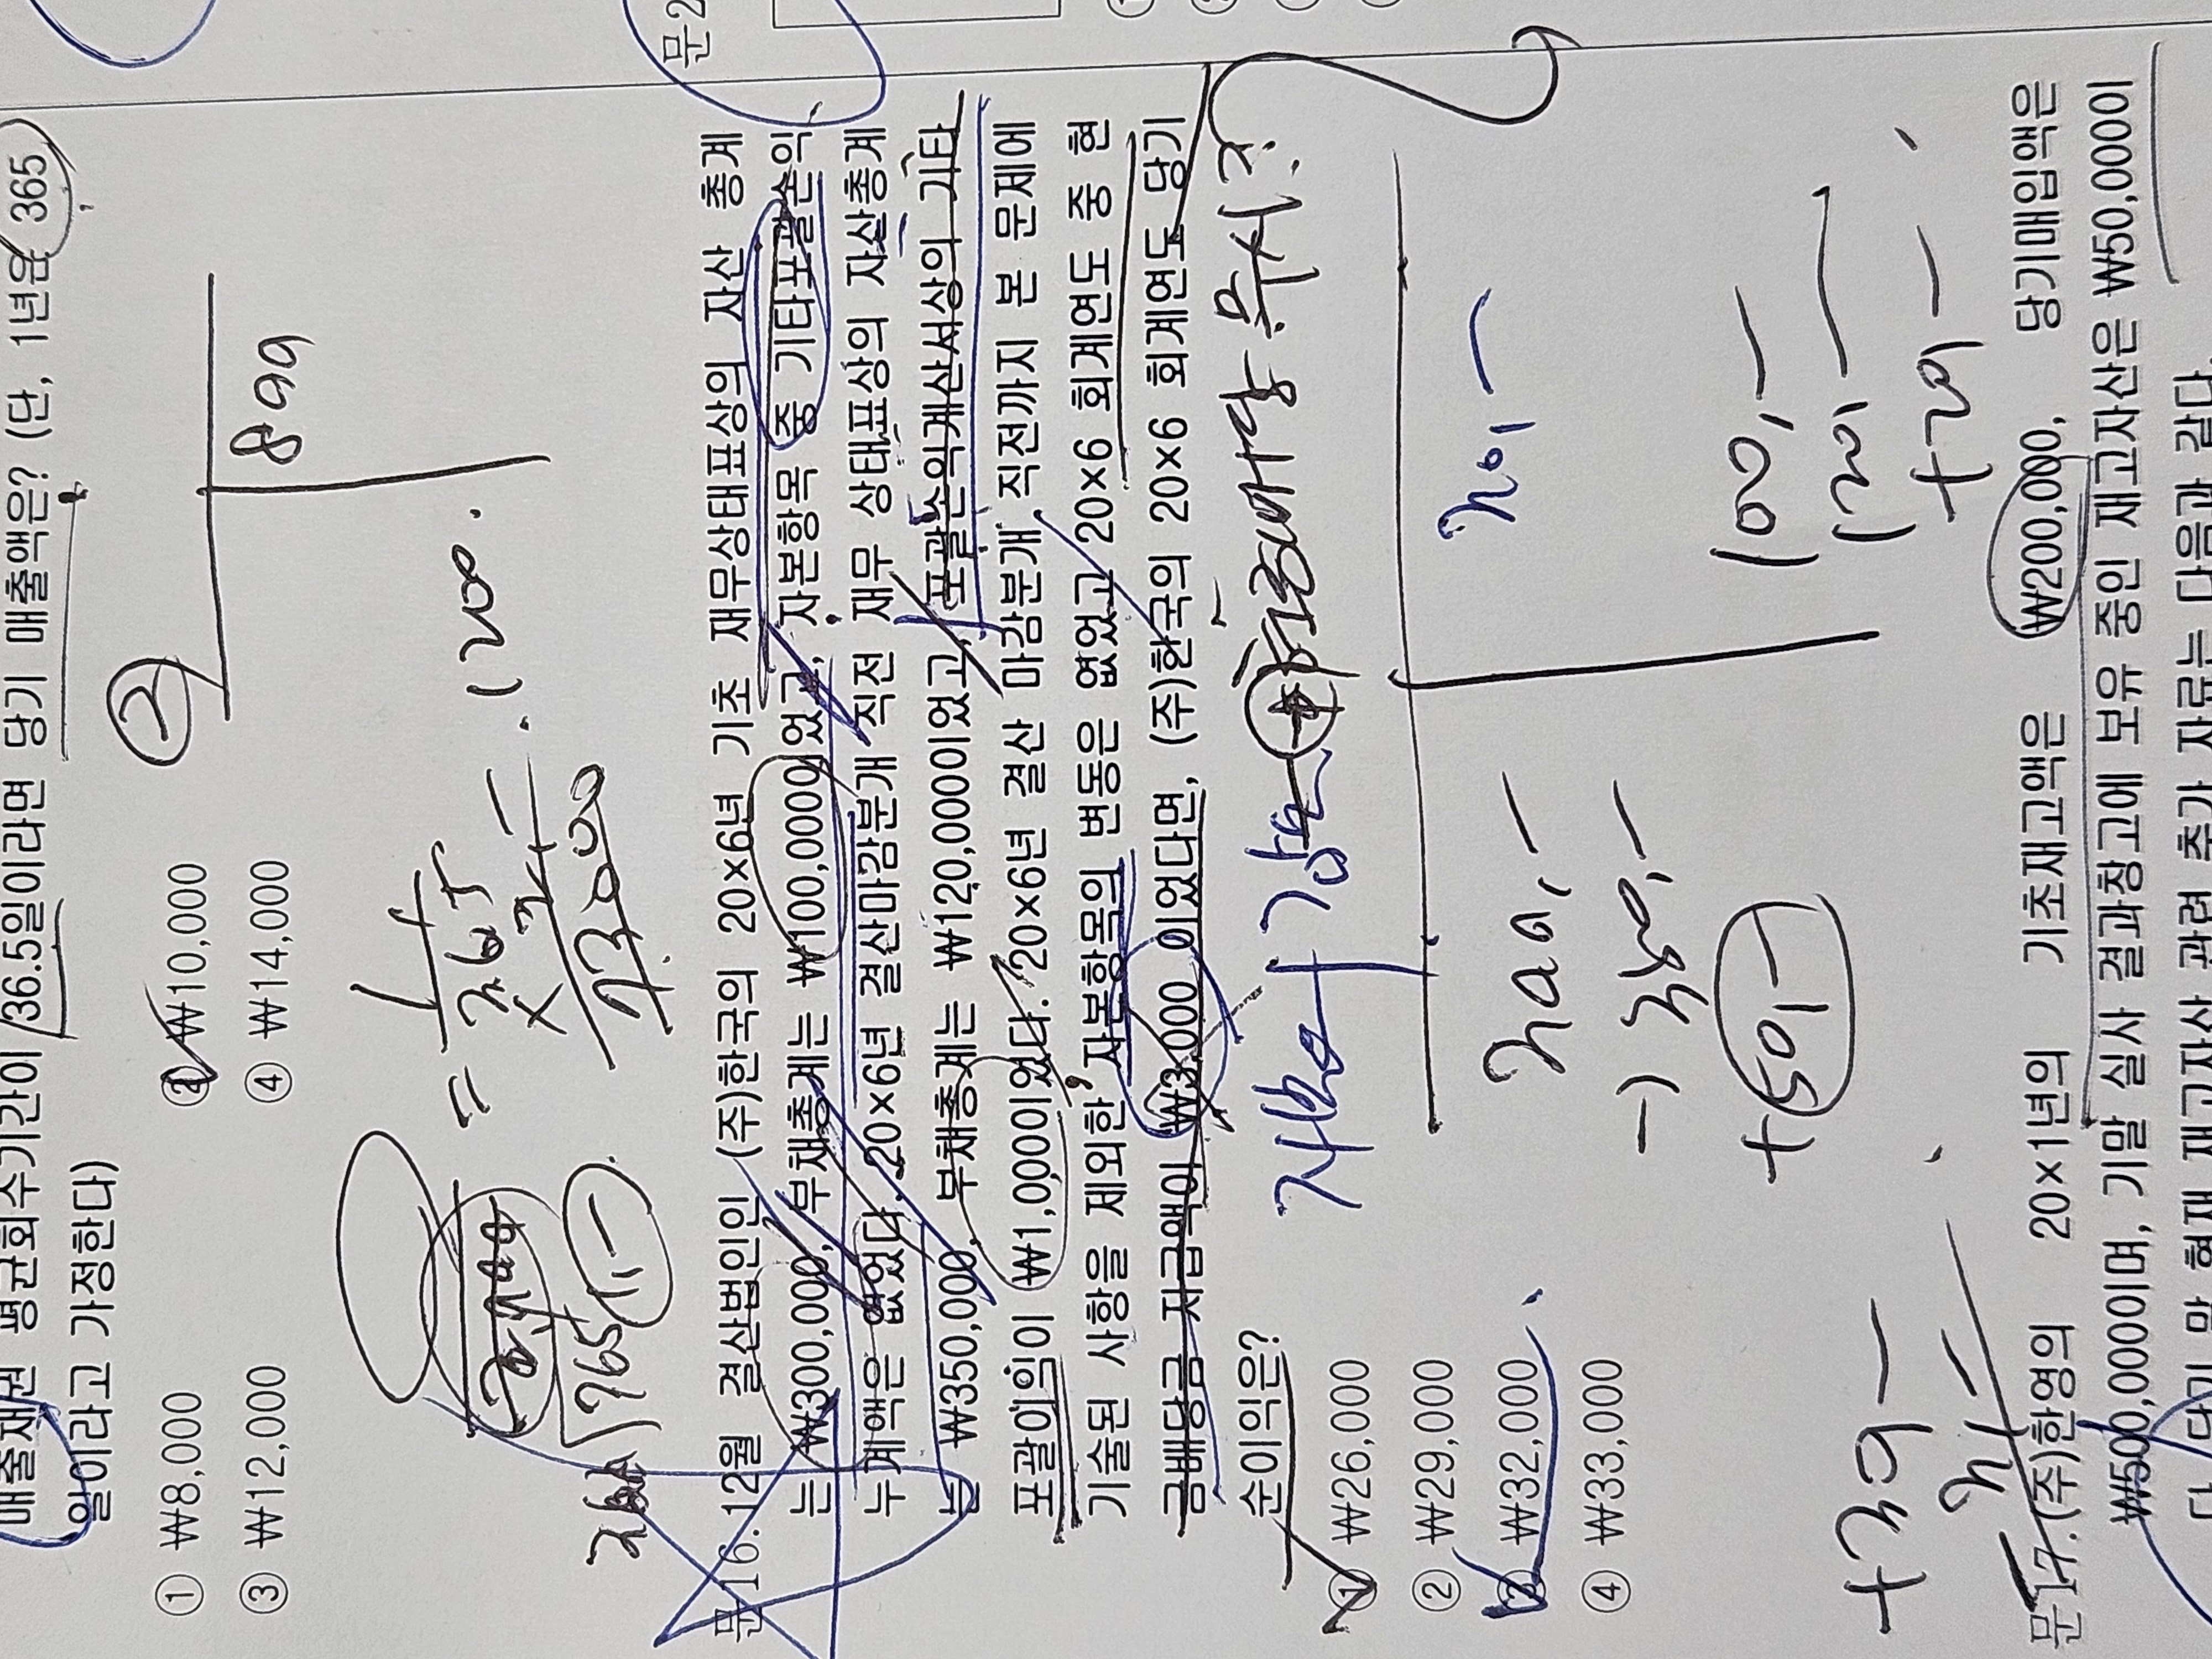 매출채권 평균회수기간이 36.5일이라면 당기 매출액은? (단, 1년은 365
일이라고 가정한다)
① ₩8,000 ② ₩10,000
③ ₩12,000 ④ ₩14,000
899
= 1
365
73000
765
1,-
문 16. 12월 결산법인인 (주)한국의 20×6년 기초 재무상태표상의 자산 총계
는 ₩300,000, 부채총계는 ₩100,000이었고, 자본항목 중 기타포괄손익
누계액은 없었다. 20×6년 결산마감분개 직전 재무 상태표상의 자산총계
는 ₩350,000, 부채총계는 ₩120,000이었고, 포괄손익계산서상의 기타
포괄이익이 ₩1,000이었다. 20×6년 결산 마감분개 직전까지 본 문제에
기술된 사항을 제외한 자본항목의 변동은 없었고 20×6 회계연도 중 현
금배당금 지급액이 ₩3,000 이었다면, (주)한국의 20×6 회계연도 당기
순이익은?
① ₩26,000
② ₩29,000
③ ₩32,000
④ ₩33,000
300,-
350,-
+50,-
100,-
120,-
+20,-
문 17. (주)한영의 20×1년의 기초재고액은 ₩200,000, 당기매입액은
₩500,000이며, 기말 실사 결과창고에 보유 중인 재고자산은 ₩50,000이
다. 당기 말 현재 재고자산 관련 추가 자료는 다음과 같다.
문2